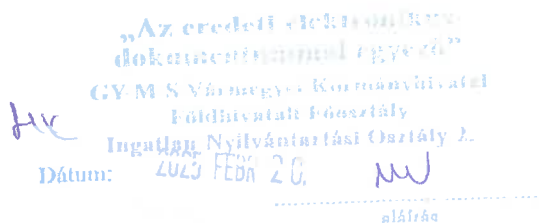 „Az eredeti elektronikus
dokumentummal egyező”
GY-M-S Vármegyei Kormányhivatal
Földhivatali Főosztály
Ingatlan Nyilvántartási Osztály 2.
Dátum: 2025 FEBR 20.
aláírás